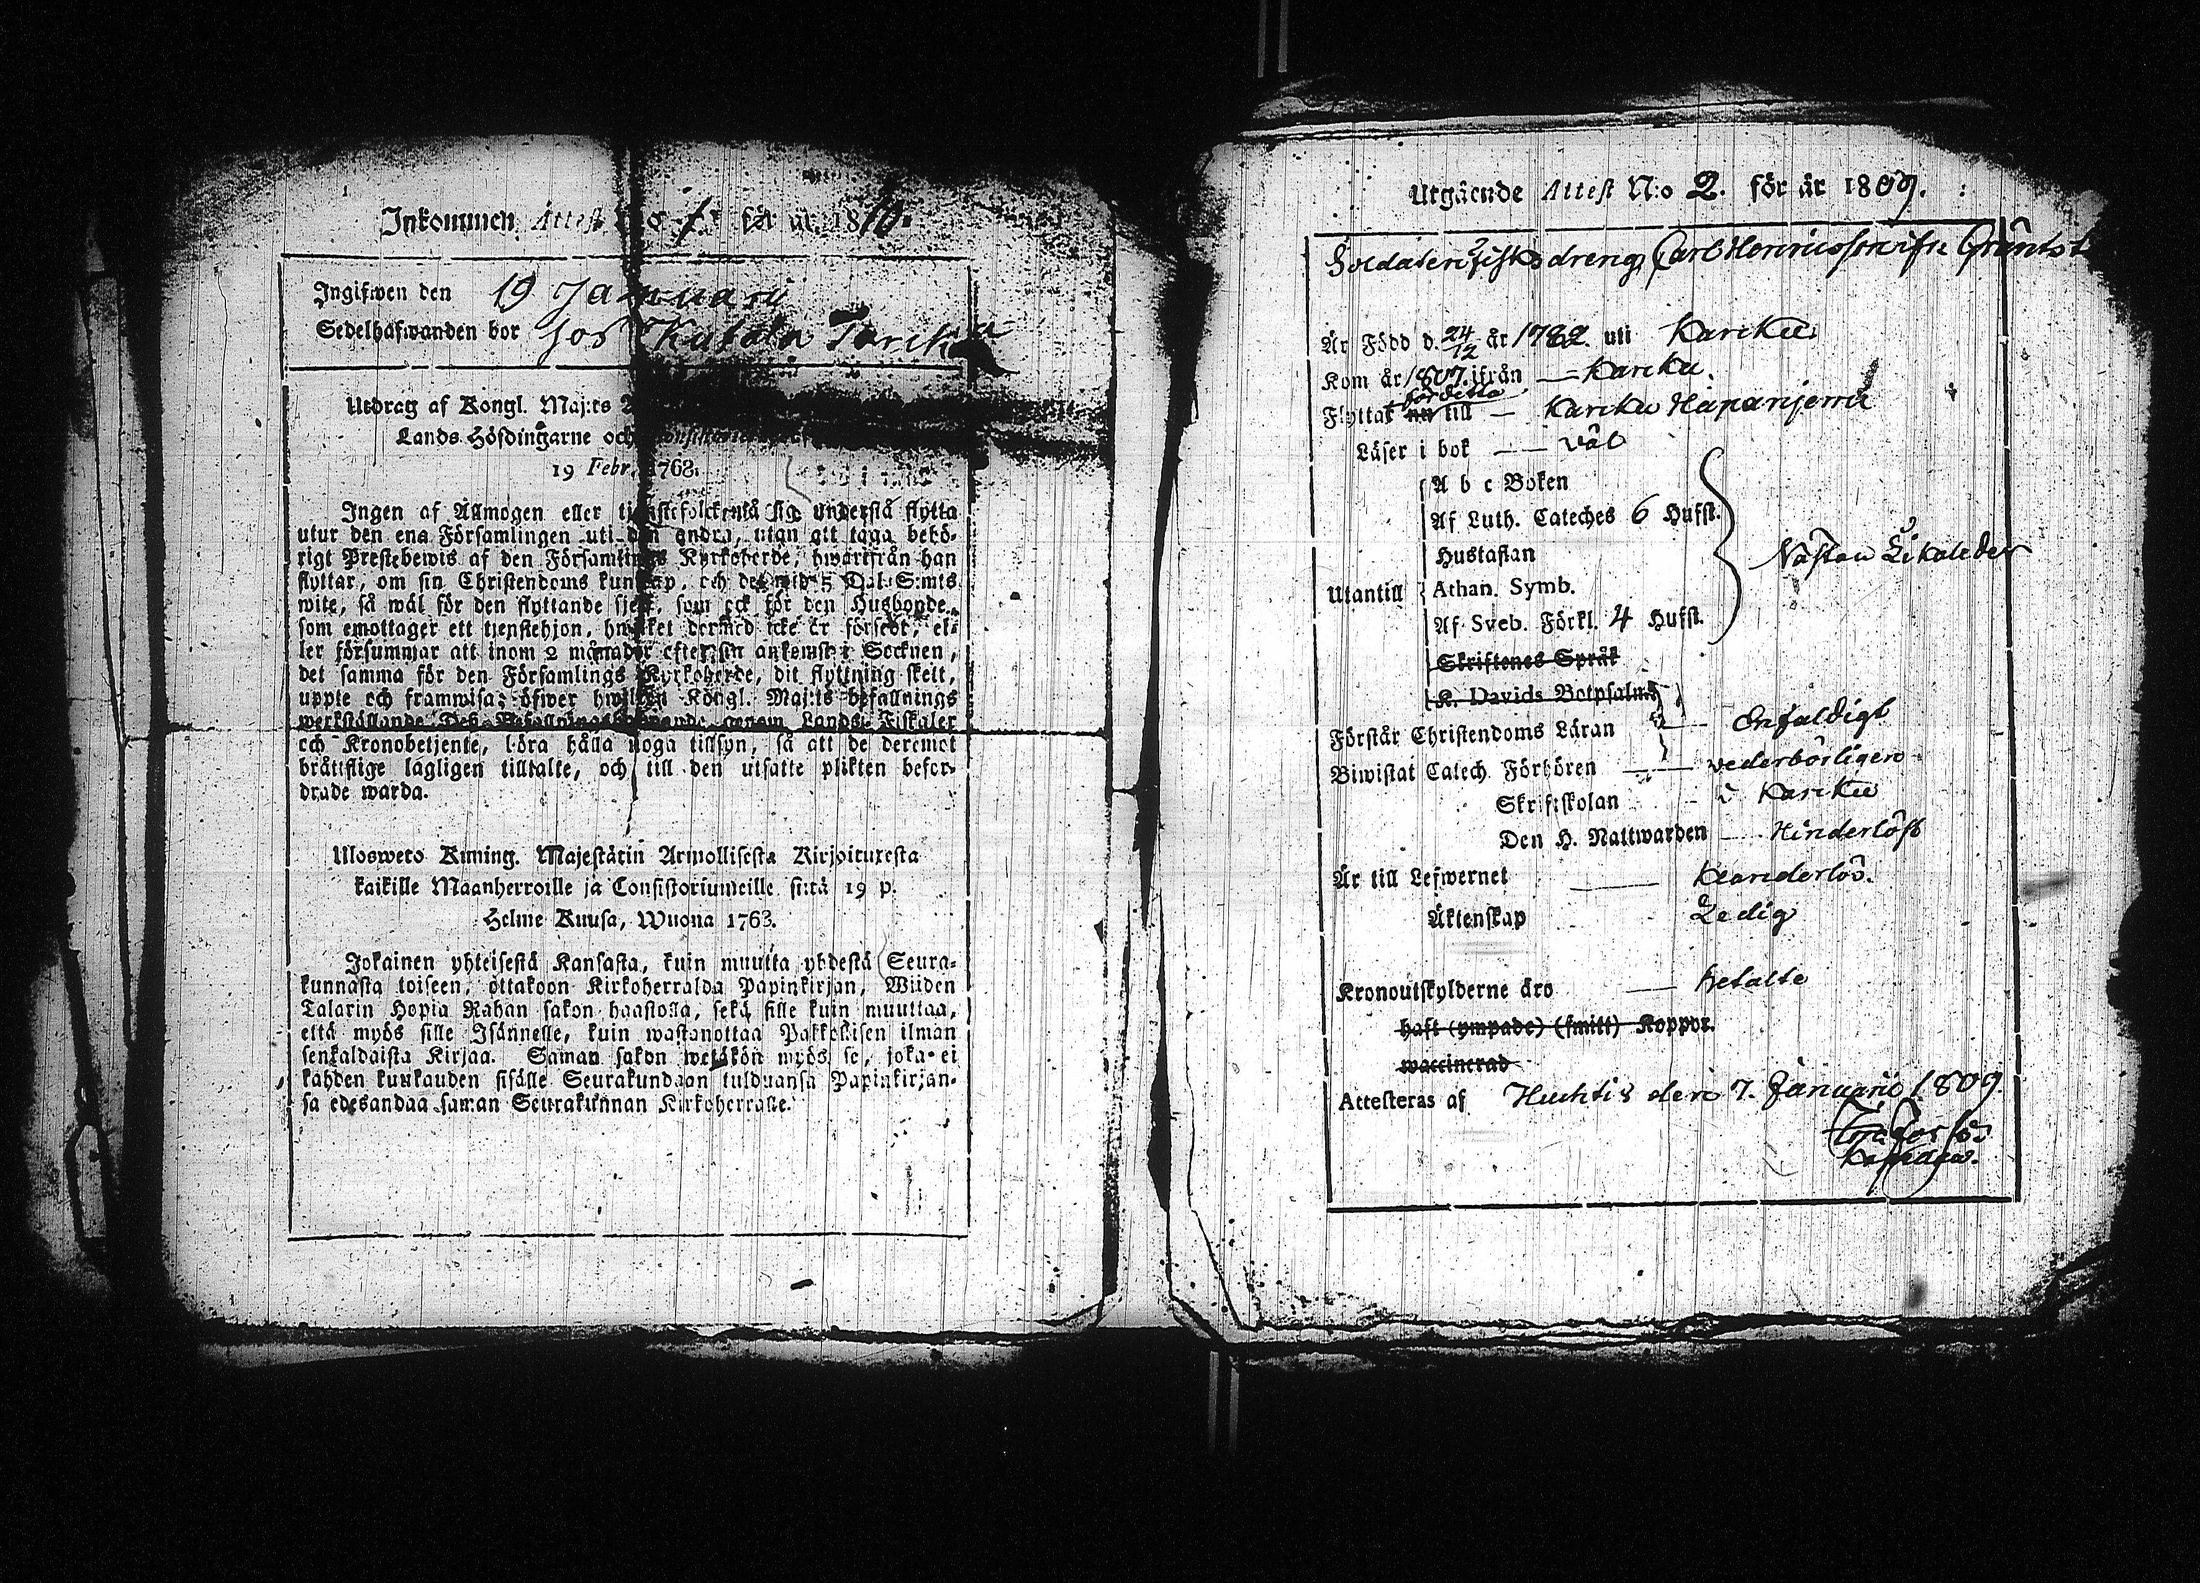 Inkommen Attest N:o 1 för år 1810.
Ingifwen den 19 Januarii
Sedelhafwanden bor hos
Utdrag af Kongl. Maj:ts
Lands Höfdingarne och
19 Febr. 1763.
Ingen af Allmogen eller tjenstefolck må sig understå flytta
utur den ena Församlingen uti den andra, utan att taga behö-
rigt Prestebewis af den Församlings Kyrkoherde, hwarifrån han
flyttar, om sin Christendoms kunskap, och det wid 5 Dal. S:mts
wite, så wäl för den flyttande sjelf, som ock för den Husbonde
som emottager ett tjenstehjon, hwilket dermed icke är försedt, el-
ler försummar att inom 2 månader efter sin ankomst i Socknen,
det samma för den Församlings Kyrkoherde, dit flyttning skett,
uppte och frammisa; öfwer hwilken Kongl. Maj:ts befallnings
werkställande Des Befallningshafwande genom Lands Fiskaler
och Kronobetjente, böra hålla noga tillsyn, så att de deremot
bråttslige lagligen tilltalte, och till den utsatte plikten befor-
drade warda.
Ulosweto Kuning. Majestätin Armollisesta Kirjoituxesta
kaikille Maanherroille ja Consistoriumeille siitä 19 p.
Helme Kuusa, Wuona 1763.
Jokainen yhteisestä Kansasta, kuin muutta yhdestä Seura-
kunnasta toiseen, ottakoon Kirkoherralda Papinkirjan, Wiiden
Talarin Hopia Rahan sakon haastolla, sekä sille kuin muuttaa,
että myös sille Isännelle, kuin wastanottaa Palkkolaisen ilman
senkaldaista Kirjaa. Saman sakon wetäkön myös se, joka ei
kahden kuukauden sisälle Seurakundaan tulduansa Papinkirjan-
sa edesandaa saman Seurakunnan Kirkoherralle.
Utgående Attest N:o 2. för år 1809.
Soldaten Carl Henricsson
Är Född d. 24/12 år 1782. uti Karcku
Kom år 1807. ifrån — Karcku.
för detta
Flyttar nu till — Karcku Haparijerru
Läser i bok — — väl
A b c Boken
Af Luth. Cateches 6 Hufst.
Hustaflan
Utantill Athan. Symb.
Nästan Likaledes
Af Sveb. Förkl. 4 Hufst.
Skriftenes Språk
K. Davids Botpsalm.
Förstår Christendoms Läran — Enfaldigt
Biwistat Catech. Förhören — vederbörligen
Skriftskolan - i Karcku
Den H. Nattwarden — Hinderlöst
Är till Lefwernet — Klanderlös.
Äktenskap Ledig
Kronoutskylderne äro — betalte
haft (ympade) (smitt) Koppor.
waccinerad
Attesteras af Huhtis den 7. Januarii 1809.